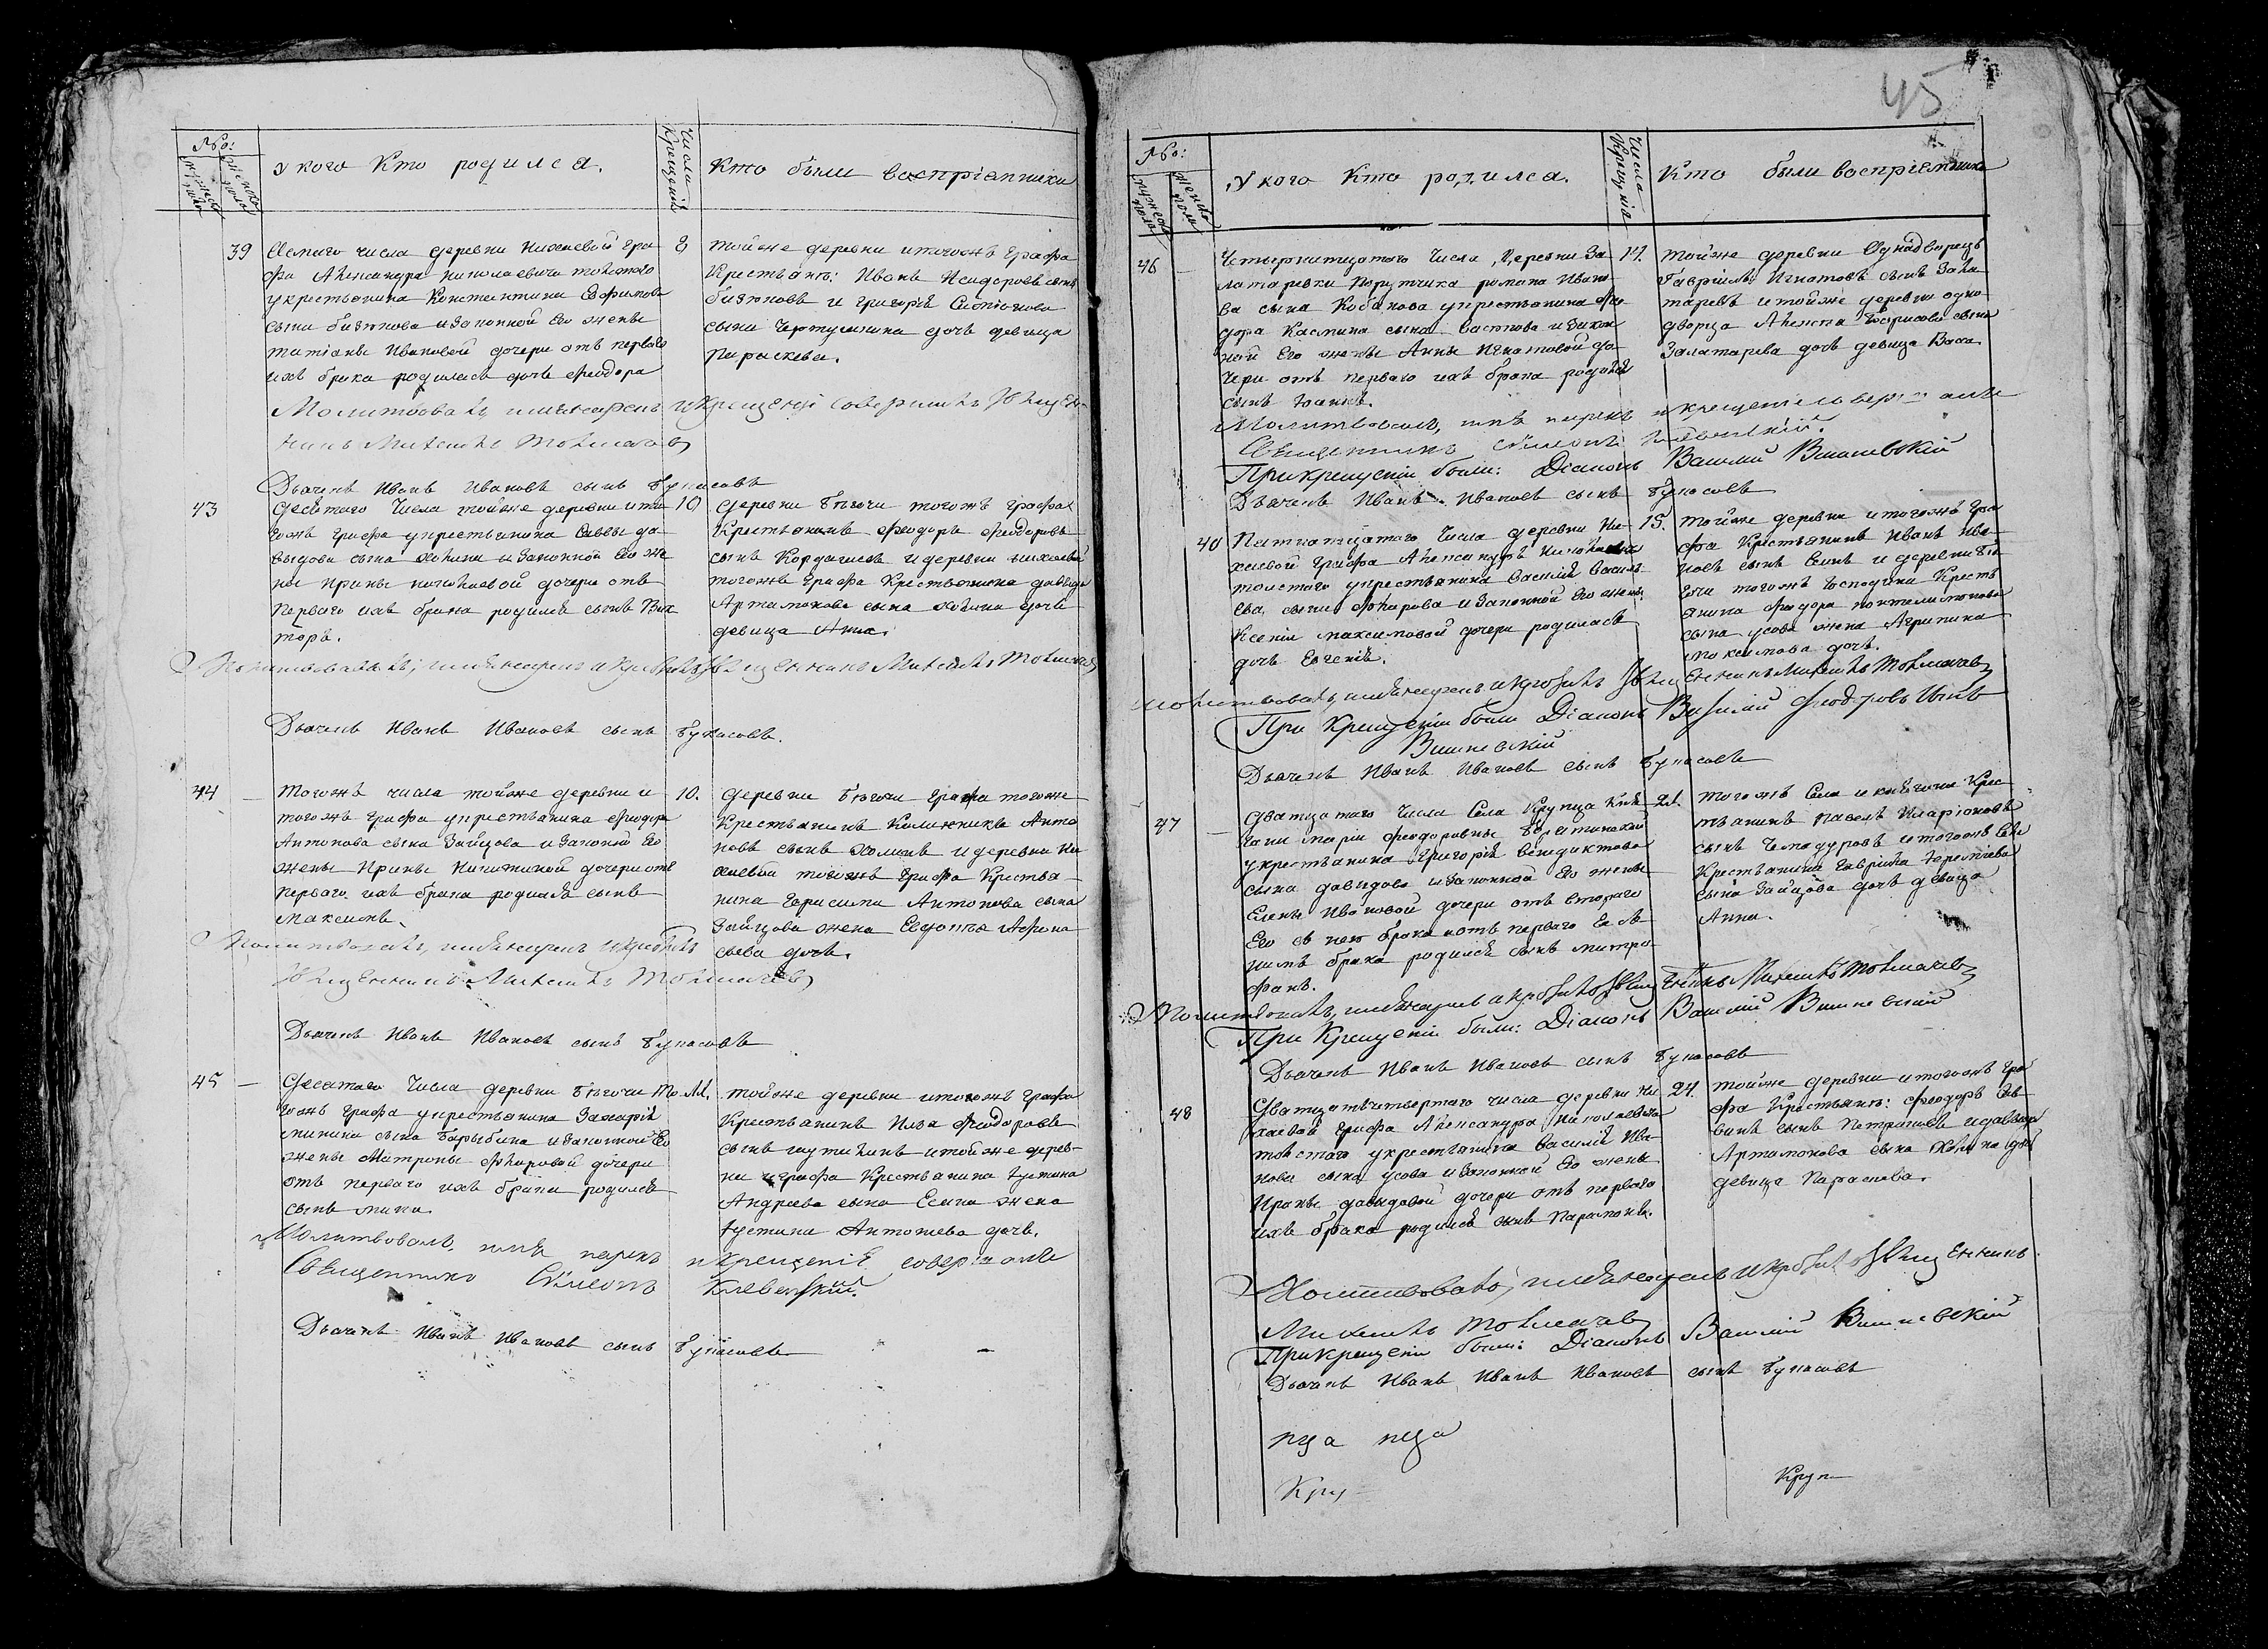 №:
мужеска пола
женска пола
У кого кто родился.
Числа Крещенія
Кто были воспріемники
39 Осмаго числа деревни Михаевой гра- 8
фа Александра Николаевича толстого
у крестьянина Константина Ефимова
сына бизюкова и законной Его жены
татіаны Ивановой дочери отъ перваго
ихъ брака родилась дочь Феодора
тойже деревни и тогожъ графа
Крестьянъ: Иванъ Исидоровъ сынъ
бизюковъ и григорія
сына дочь девица
параскева.
Молитвовалъ имянарекъ и крещеніе совершилъ Священ-
никъ Михаилъ Толмачевъ
Дьячекъ Иванъ Ивановъ сынъ Букасовъ
43 Десятого числа тойже деревни и то- 10
гожъ графа у крестьянина Саввы да-
выдова сына и законной Его же
ны Ирины николаевой дочери отъ
перваго ихъ брака родился сынъ Вик
торъ.
деревни тогожъ графа
Крестьянинъ Феодоръ Феодоровъ
сынъ и деревни михаевой
тогожъ графа Крестьянина давыда
Артамонова сына дочь
девица Анна.
Молитвовалъ, имянарекъ и крестилъ Священникъ Михаилъ Толмачевъ
Дьячекъ Иванъ Ивановъ сынъ Букасовъ.
44 — Тогожъ числа тойже деревни и 10.
тогожъ графа у крестьянина Феодора
Антонова сына Зайцова и законной Его
жены Ирины Никитиной дочери отъ
перваго ихъ брака родился сынъ
Максимъ.
деревни графа тогоже
Крестьянинъ Калинникъ Анто
новъ сынъ и деревни ми
хаевой тогожъ графа Крестья-
нина Герасима Антонова сына
Зайцова жена Евдокія Афона
сьева дочь.
Молитвовалъ, имянарекъ и крестилъ
Священникъ Михаилъ Толмачевъ
Дьячекъ Иванъ Ивановъ сынъ Букасовъ
45 — Десятаго числа деревни то 11.
гожъ графа у крестьянина Захарія
минина сына Барыбина и законной Его
жены Матроны Фларовой дочери
отъ перваго ихъ брака родился
сынъ мина.
тойже деревни и тогожъ графа
Крестьянинъ Илья Феодоровъ
сынъ и тойже дерев-
ни и графа Крестьянина Устина
Андреева сына Есина жена
Устинья Антонова дочь.
Молитвовалъ, имя нарекъ и Крещеніе совершилъ
Священникъ Симеонъ Клевенскій.
Дьячекъ Иванъ Ивановъ сынъ Букасовъ
45
№:
мужеска пола
женска пола
У кого Кто родился.
Числа Крещенія
Кто были воспріемники
46 — Четырнатцатого числа, Деревни За- 14.
латаревки Порутчика романа Ивано-
ва сына Кобякова у крестьянина Фео-
дора Касмина сына и закон
ной Его жены Анны Игнатовой до-
чери отъ перваго ихъ брака родился
сынъ Іоаннъ.
тойже деревни Однадворецъ
Гавріилъ Игнатовъ сынъ Зала
таревъ и тойже деревни одно-
дворца Алексея Борисова сына
Залатарева дочь девица Васса.
Молитвовалъ, имя нарекъ и крещеніе совершилъ
Священникъ Симеонъ Клевенскій.
При крещеніи были: Діаконъ Василій Вишневскій
Дьячекъ Иванъ Ивановъ сынъ Букасовъ
40 Пятнатцатого числа деревни Ми- 15.
хаевой графа Александра Николаевича
толстаго у крестьянина Василія Василь
ева сына Фларова и законной Его жены
Ксеніи максимовой дочери родилась
дочь Евгенія.
тойже деревни и тогожъ гра
фа Крестьянинъ Иванъ Ива
новъ сынъ и деревни
тогожъ господина Кресть
янина Феодора пантелимонова
сына усова жена Агрипина
максимова дочь.
Молитвовалъ, имянарекъ и крестилъ Священникъ Михаилъ Толмачевъ
При Крещеніи были Діаконъ Василій Феодоровъ сынъ
Вишневскій
Дьячекъ Иванъ Ивановъ сынъ Букасовъ
47 — Дватцатого числа Села Крупца Кня- 21.
гини маріи феодоровны Барятинской
у крестьянина Григорія Венедиктова
сына давыдова и законной Его жены
Елены Ивановой дочери отъ втораго
Его съ нею брака и отъ перваго Ея съ
нимъ брака родился сынъ митро-
фанъ.
тогожъ села и княгини Крес
тьянинъ павелъ Иларіоновъ
сынъ и тогожъ села
Крестьянина Гаврила
сына Зайцова дочь девица
Анна.
Молитвовалъ, имянарекъ и крестилъ Священникъ Михаилъ Толмачевъ
При Крещеніи были: Діаконъ Василій Вишневскій
Дьячекъ Иванъ Ивановъ сынъ Букасовъ
48 Дватцатьчетвертаго числа деревни Ми 24.
хаевой графа Александра Николаевича
толстаго у крестьянина Василія Ива-
нова сына усова и законной Его жены
Ирины давыдовой дочери отъ перваго
ихъ брака родился сынъ Парамонъ.
тойже деревни и тогожъ гра
фа Крестьянъ: Феодоръ Сав
винъ сынъ и давыда
Артамонова сына дочь
девица Параскева.
Молитвовалъ, имянарекъ и крестилъ Священникъ
Михаилъ Толмачевъ
При крещеніи были: Діаконъ Василій Вишневскій
Дьячекъ Иванъ Иванъ Ивановъ сынъ Букасовъ
пца пца
Кру
Круп